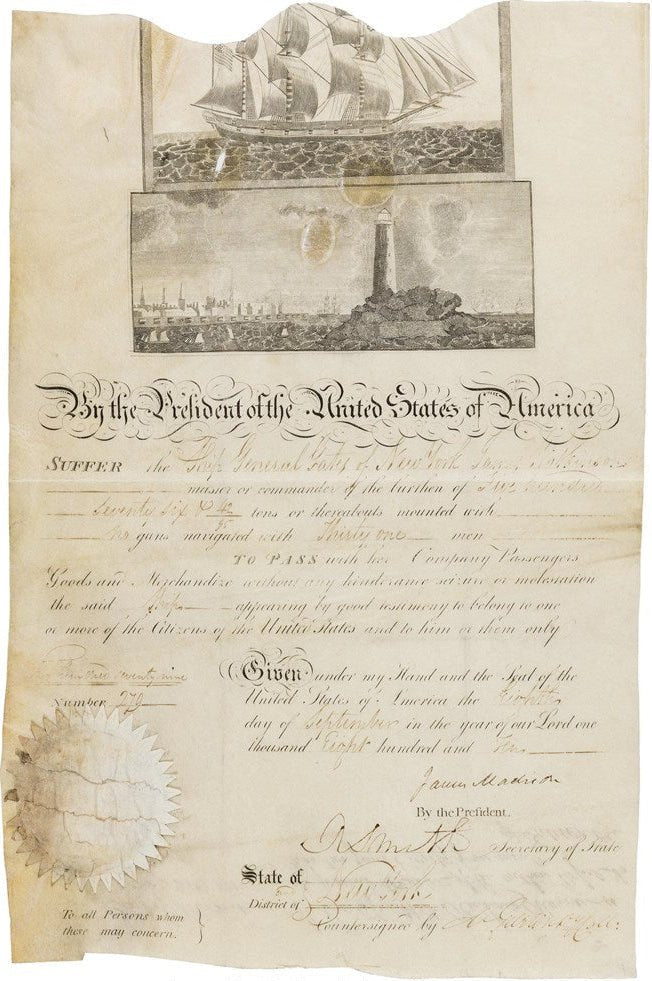 By the President of the United States of America
SUFFER the Ship General Gates of New York
master or commander of the burthen of Two hundred
Seventy Six & 42/95 tons or thereabouts mounted with
No guns navigated with Thirty one men
TO PASS with her Company Passengers
Goods and Merchandize without any hinderance seizure or molestation
the said Ship appearing by good testimony to belong to one
or more of the Citizens of the United States and to him or them only
seventy nine
Number 279
Given under my Hand and the Seal of the
United States of America the Eighth
day of September in the year of our Lord one
thousand Eight hundred and Ten
James Madison
By the President.
R Smith Secretary of State
State of New York
District of
Countersigned by
To all Persons whom
these may concern.